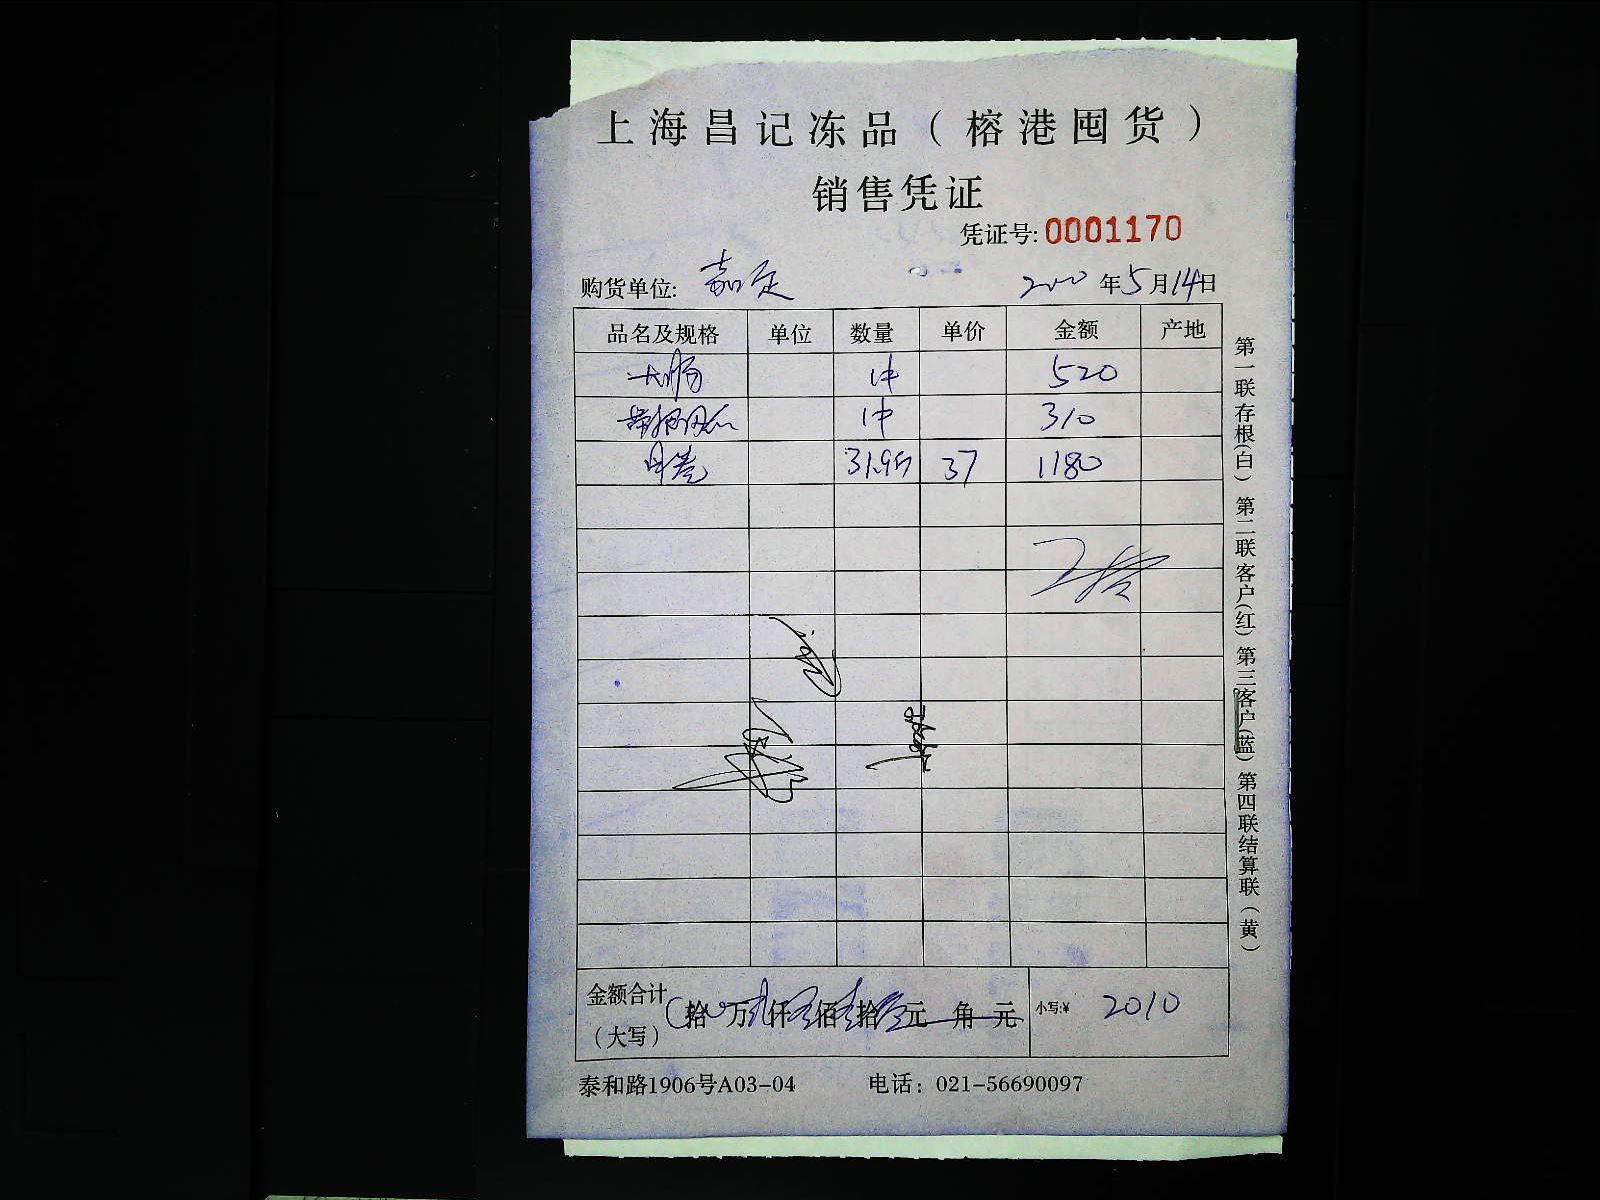 上海昌记冻品（榕港囤货）
销售凭证
凭证号: 0001170
购货单位: 嘉定 年5月14日
品名及规格 单位 数量 单价 金额 产地
大肠 1件 520
1件 310
31.95 37 1180
金额合计（大写） 拾 万 仟 佰 拾 元 角 元 小写:¥ 2010
泰和路1906号A03-04 电话：021-56690097
第一联存根(白) 第二联客户(红) 第三客户(蓝) 第四联结算联（黄）